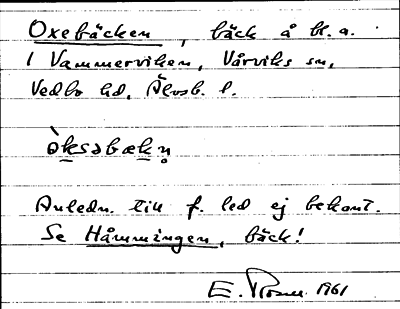 Oxebäcken, bäck å bl. a.
i Vammerviken, Vårviks sn,
Vedbo hd, Älvsb. l.
òksəbækn̥
Anledn. till f. led ej bekant.
Se Håmmingen, bäck!
E. 1961